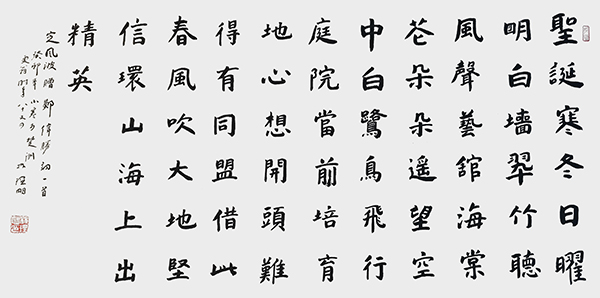 聖誕寒冬日曜
明白墻翠竹聽
風聲藝舘海棠
花朵朵遥望空
中白鷺鳥飛行
庭院當前培育
地心想開頭難
得有同盟借此
春風吹大地堅
信環山海上出
精英
定風波贈鄭偉勝詞一首
癸卯年小寒